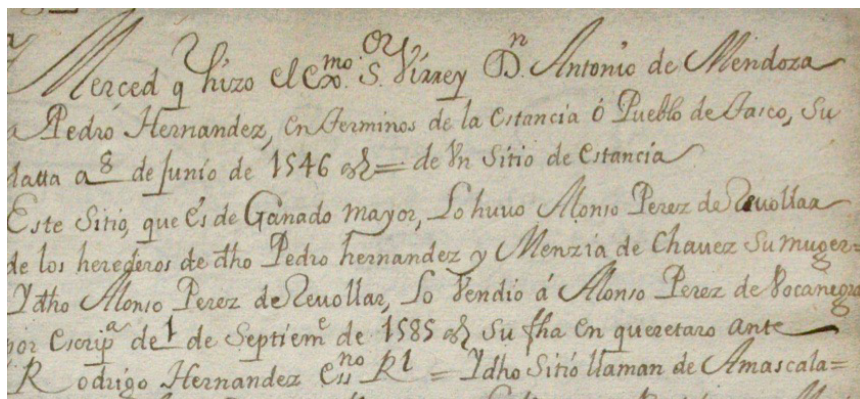 Merced q hizo el Exmo. Sor. Virrey Dn. Antonio de Mendoza
a Pedro Hernandez, en terminos de la Estancia ó Pueblo de Tasco, Su
datta a 8 de Junio de 1546 as = de Vn Sitio de Estancia
Este Sitio, que Es de Ganado mayor, Lo huvo Alonso Perez de Revollar
de los herederos de dho Pedro hernandez y Menzia de Chavez Su muger=
Y dho Alonso Perez de Revollar, Lo Vendio á Alonso Perez de Vocanegra
por Escripa de 1 de Septieme de 1585 as Su fha en queretaro ante
Rodrigo Hernandez Essno Rl = Y dho Sitio llaman de Amascala=